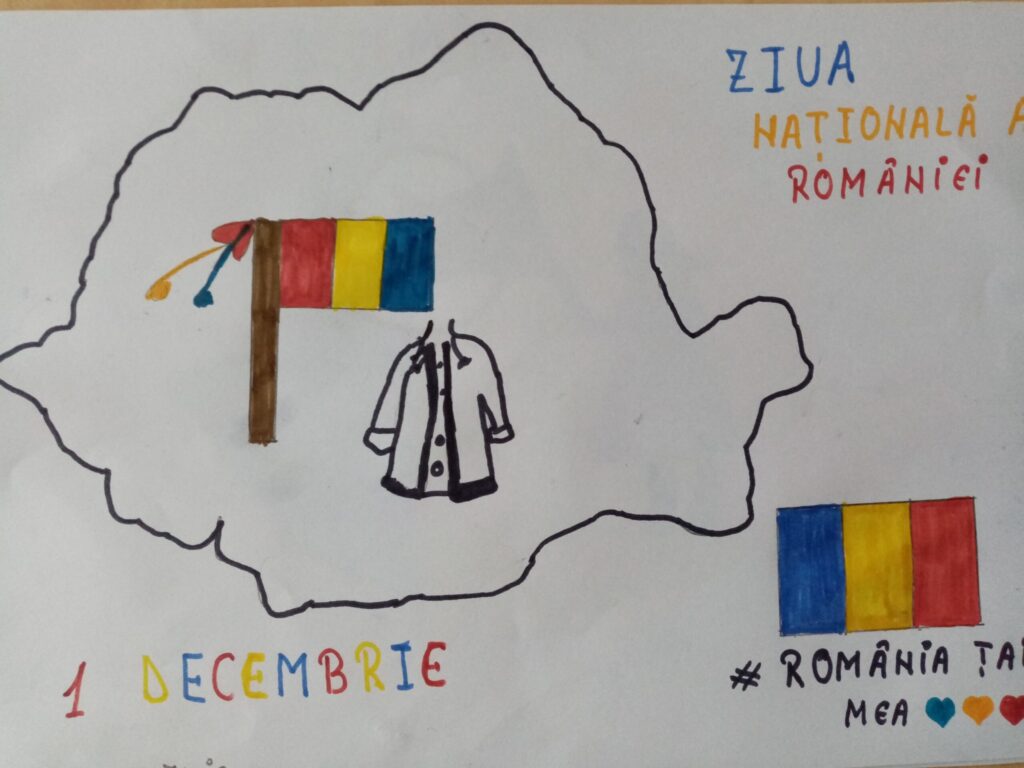 ZIUA
NAȚIONALĂ A
ROMÂNIEI
1 DECEMBRIE
# ROMÂNIA ȚA
MEA